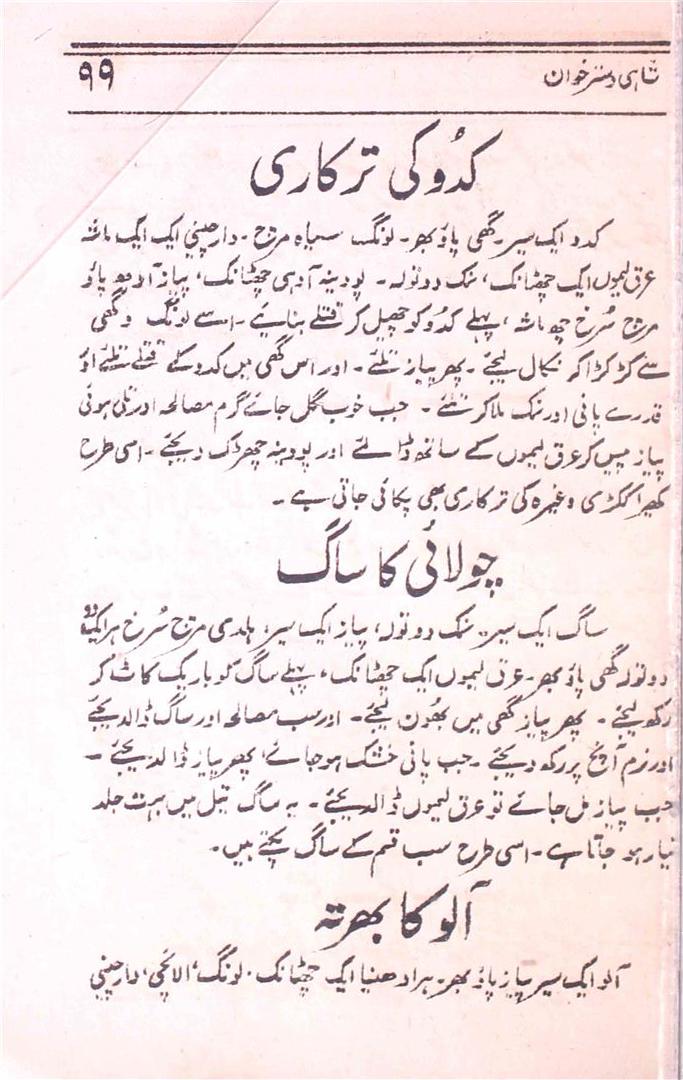 شاہی دسترخوان
۹۹
کدُو کی ترکاری
کدو ایک سیر۔ گھی پاؤ بھر۔ لونگ سیاہ مرچ۔ دارچینی ایک ایک ماشہ
عرق لیموں ایک چھٹانک، نمک دو تولہ۔ پودینہ آدہی چھٹانک، پیاز آدھ پاؤ
مرچ سُرخ چھ ماشہ، پہلے کدُو کو چھیل کر قتلے بنائیے۔ اسے لونگ و گھی
سے کڑکڑا کر نکال لیجئے۔ پھر پیاز تلئے۔ اور اس گھی میں کدو کے قتلے تلئے اور
قدرے پانی اور نمک ملا کر تلئے۔ جب خوب گل جائے گرم مصالحہ اور تلی ہوئی
پیاز پیس کر عرق لیموں کے ساتھ ڈالئے اور پودینہ چھڑک دیجئے۔ اسی طرح
کھیرا ککڑی وغیرہ کی ترکاری بھی پکائی جاتی ہے۔
چولائی کا ساگ
ساگ ایک سیر۔ نمک دو تولہ، پیاز ایک سیر، ہلدی مرچ سُرخ ہر ایک دو
دو تولہ گھی پاؤ بھر۔ عرق لیموں ایک چھٹانک، پہلے ساگ کو باریک کاٹ کر
رکھ لیجئے۔ پھر پیاز گھی میں بھُون لیجئے۔ اور سب مصالحہ اور ساگ ڈالدیجئے
اور نرم آنچ پر رکھ دیجئے۔ جب پانی خشک ہو جائے، پھر پیاز ڈالدیجئے۔
جب پیاز مل جائے تو عرق لیموں ڈالدیجئے۔ یہ ساگ تیل میں بہت جلد
تیار ہو جاتا ہے۔ اسی طرح سب قسم کے ساگ پکتے ہیں۔
آلو کا بھرتہ
آلو ایک سیر پیاز پاؤ بھر۔ ہرا دھنیا ایک چھٹانک۔ لونگ، الائچی، دارچینی